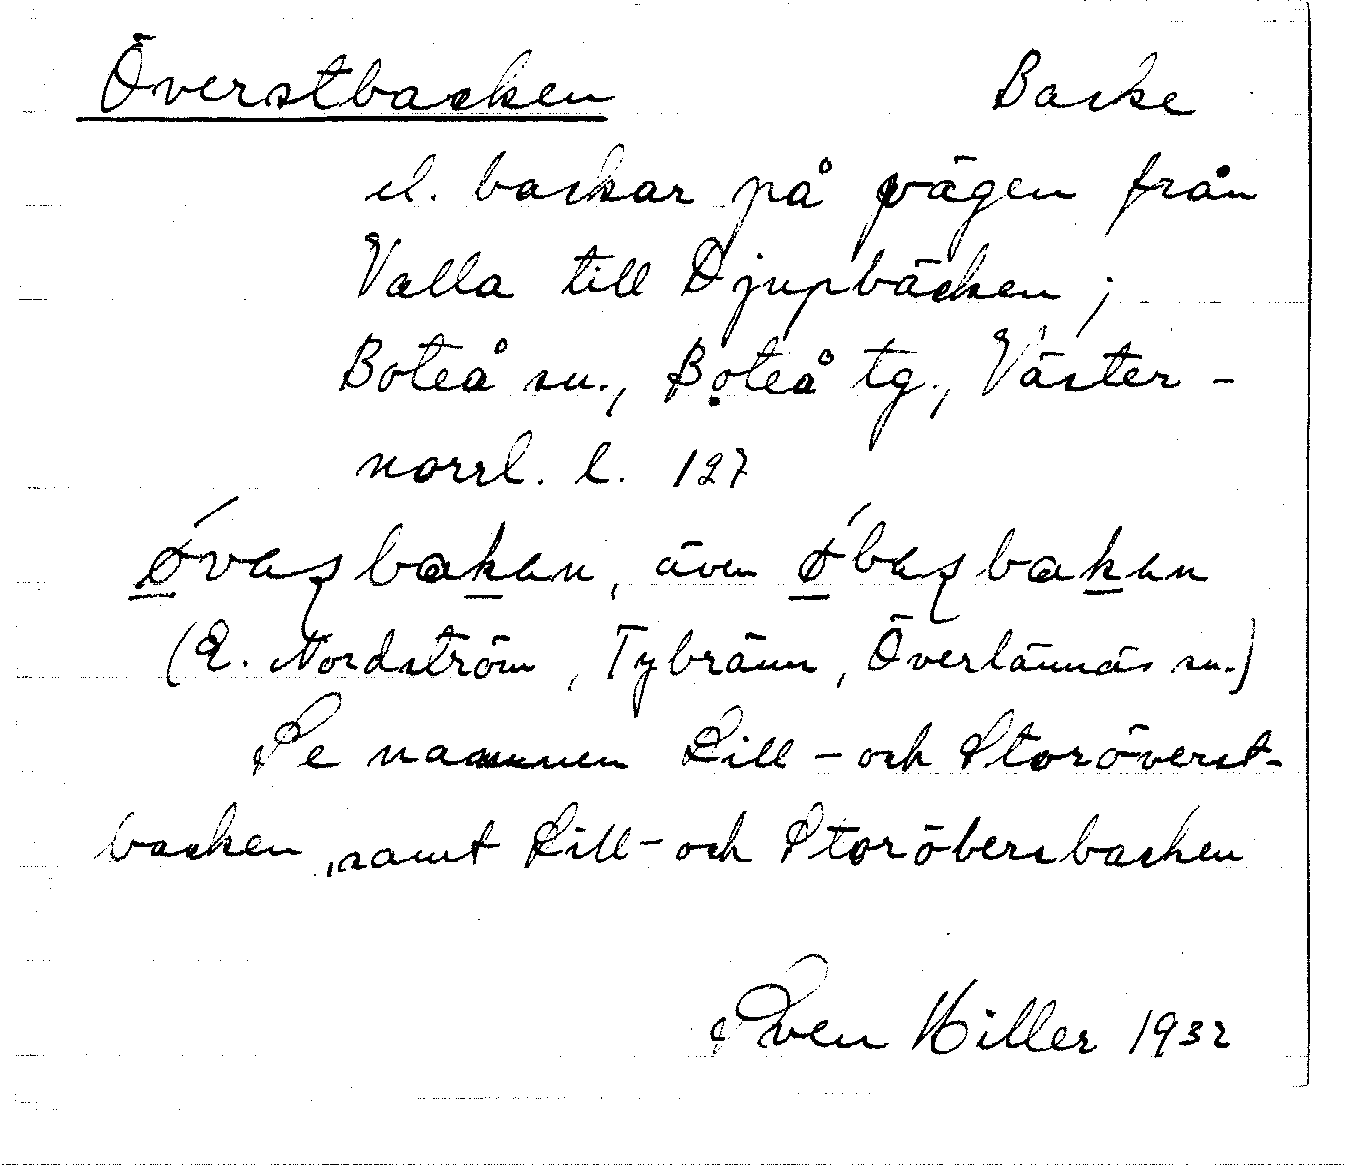 Överstbacken Backe
el. backar på vägen från
Valla till Djupbäcken;
Boteå sn., Boteå tg., Väster-
norrl. l. 127
även
(E. Nordström, Tybränn, Överlännäs sn.)
Se namnen Lill- och Storöverst-
backen, samt Lill- och Storöbersbacken
Sven Hiller 1932